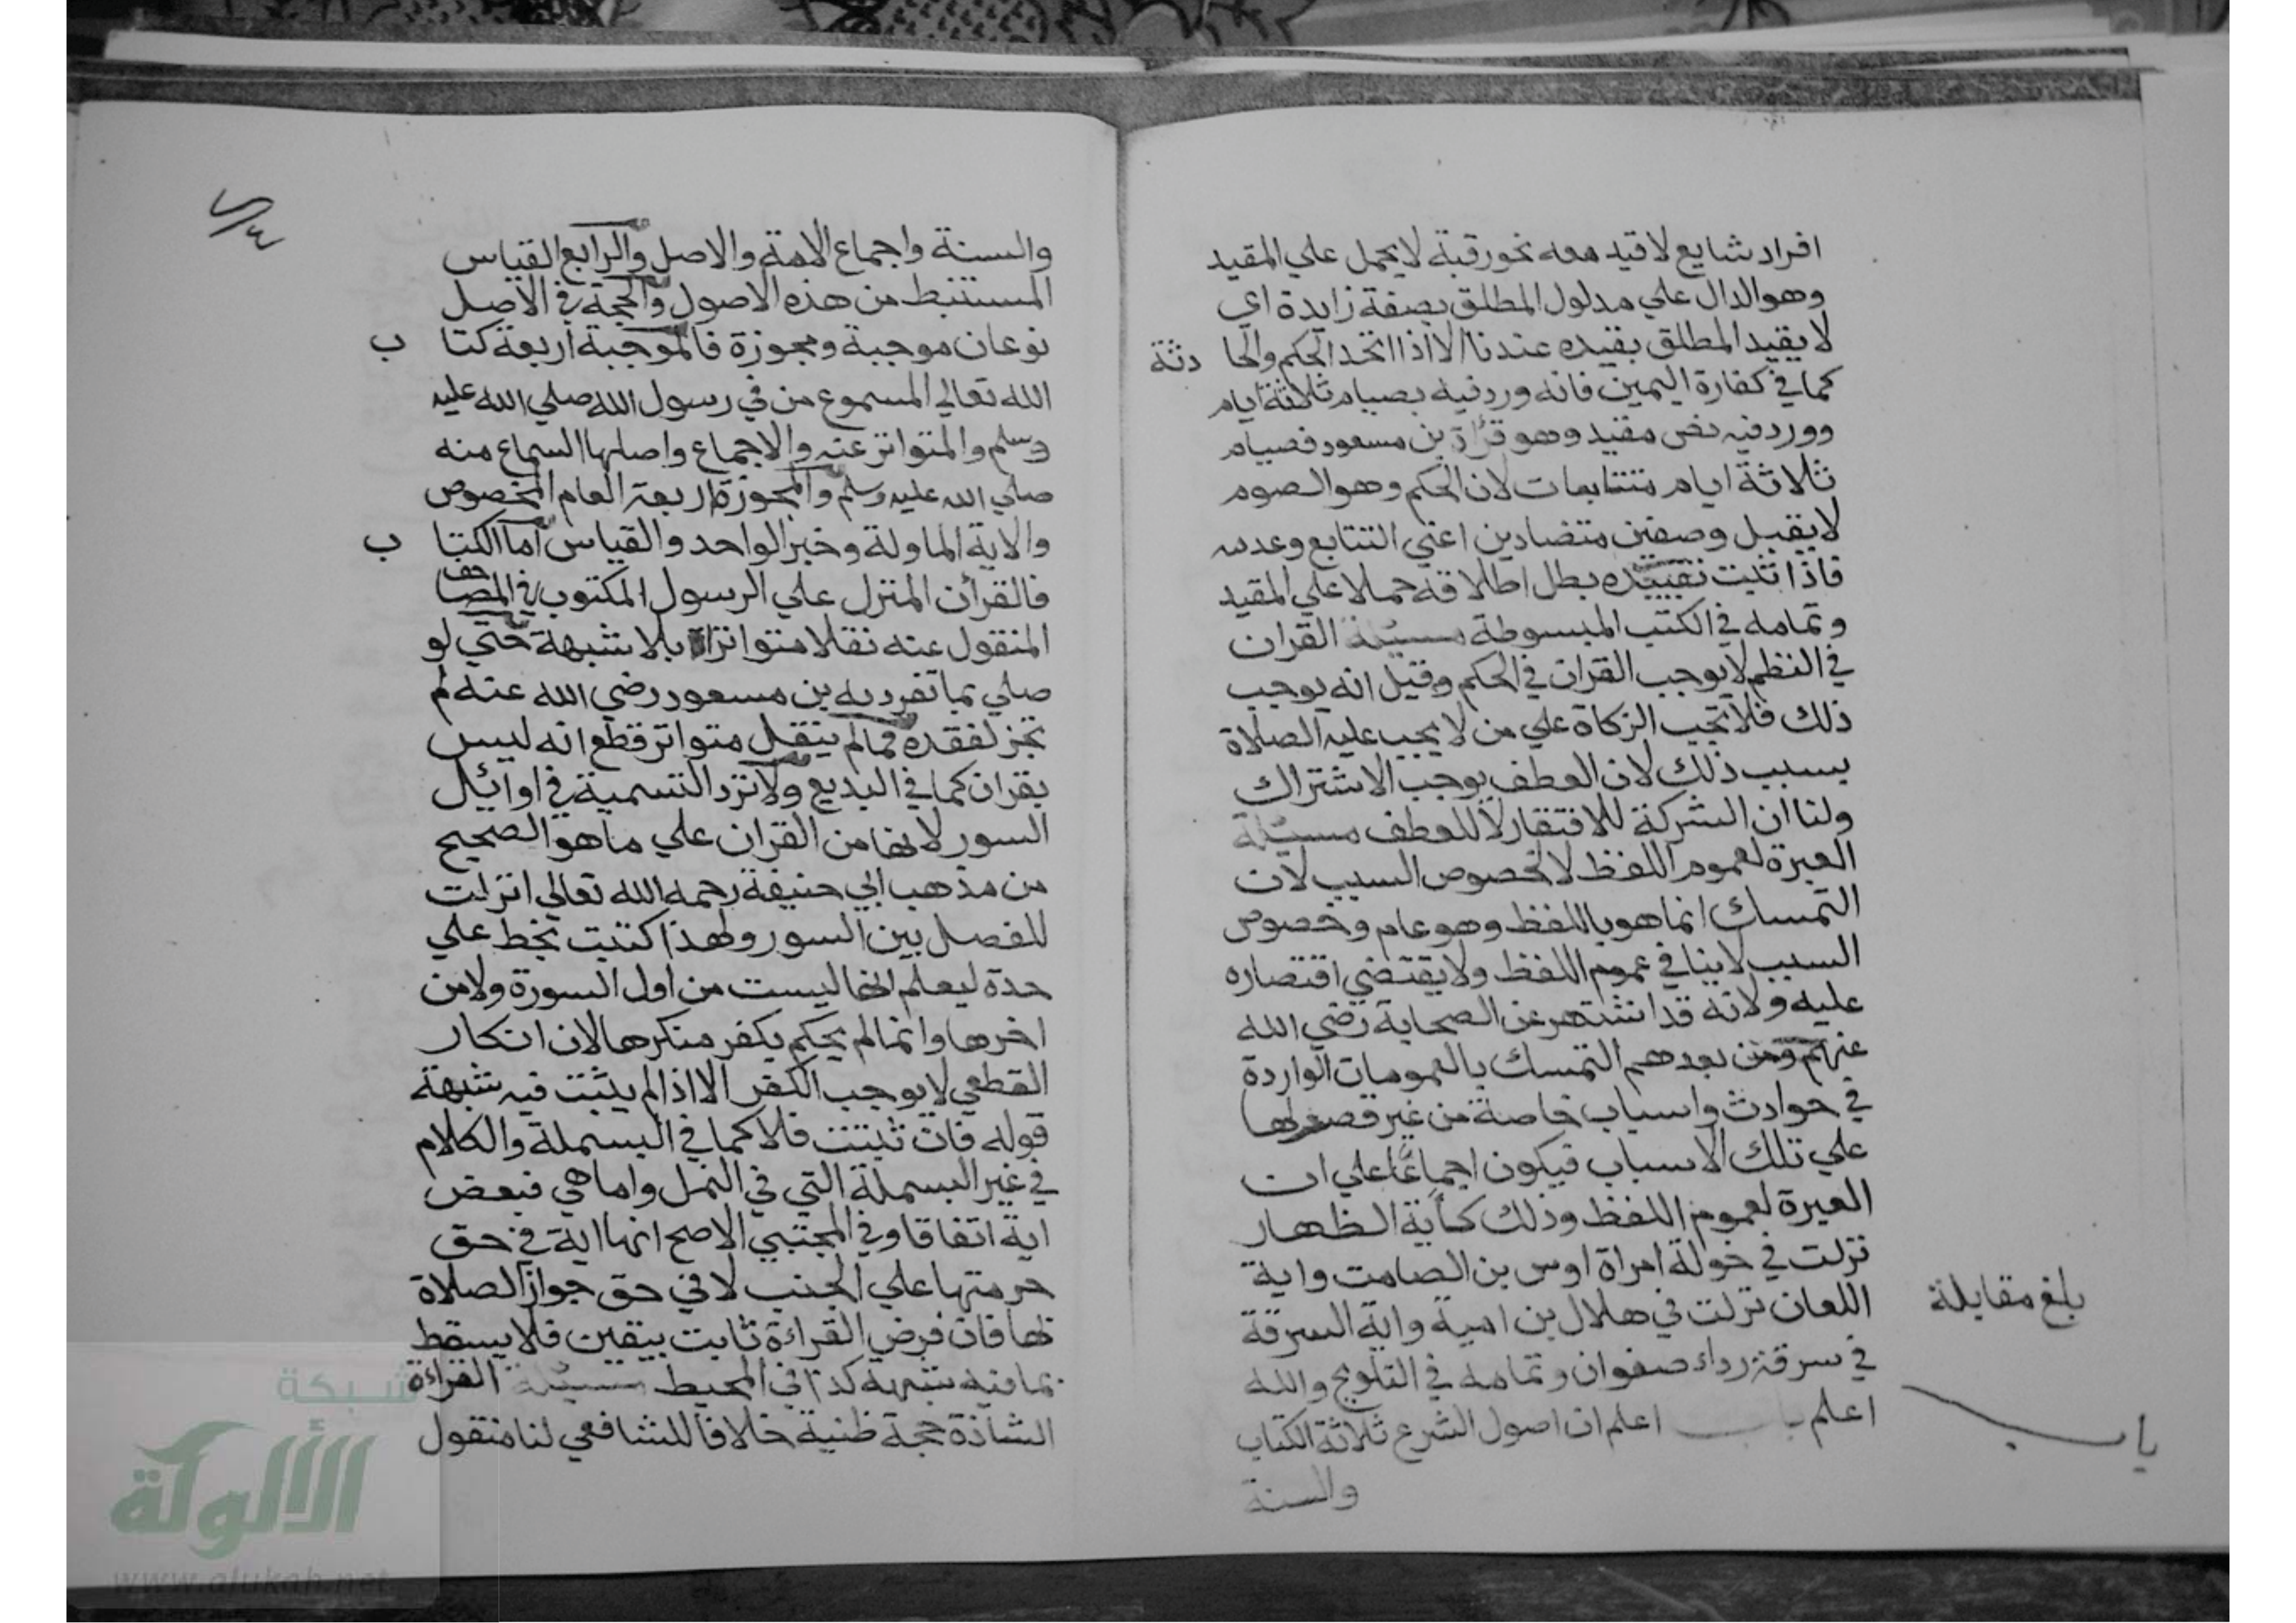 افراد شايع لا قيد معه نحو رقبة لا يحمل علي المقيد
وهو الدال علي مدلول المطلق بصفة زايدة اي
لا يقيد المطلق بقيده عندنا الا اذا اتحد الحكم والحا دثة
كما في كفارة اليمين فانه ورد فيه بصيام ثلاثة ايام
وورد فيه نص مقيد وهو قرأة بن مسعود فصيام
ثلاثة ايام متتابعات لان الحكم وهو الصوم
لا يقبل وصفين متضادين اعني التتابع وعدمه
فاذا ثبت تقييده بطل اطلاقه حملا علي المقيد
وتمامه في الكتب المبسوطة مسئلة القران
في النظم لا يوجب القران في الحكم وقيل انه يوجب
ذلك فلا تجب الزكاة علي من لا يجب عليه الصلاة
بسبب ذلك لان العطف يوجب الاشتراك
ولنا ان الشركة للافتقار لا للعطف مسئلة
العبرة لعموم اللفظ لا لخصوص السبب لان
التمسك انما هو باللفظ وهو عام وخصوص
السبب لا ينافي عموم اللفظ ولا يقتضي اقتصاره
عليه ولانه قد اشتهر عن الصحابة رضي الله
عنهم ومن بعدهم التمسك بالعمومات الواردة
في حوادث واسباب خاصة من غير قصر لها
علي تلك الاسباب فيكون اجماعًا علي ان
العبرة لعموم اللفظ وذلك كأية الظهار
نزلت في خولة امراة اوس بن الصامت واية
اللعان نزلت في هلال بن امية واية السرقة
بلغ مقابلة
في سرقة رداء صفوان وتمامه في التلويح والله
اعلم باب اعلم ان اصول الشرع ثلاثة الكتاب
باب
والسنة
والسنة واجماع الامة والاصل والرابع القياس
المستنبط من هذه الاصول والحجة في الاصل
نوعان موجبة ومجوزة فالموجبة اربعة كتا ب
الله تعالي المسموع من في رسول الله صلي الله عليه
وسلم والمتواتر عنه والاجماع واصلها السماع منه
صلي الله عليه وسلم والمجوزة اربعة العام المخصوص
والاية الماولة وخبر الواحد والقياس اما الكتا ب
فالقرأن المنزل علي الرسول المكتوب في المصا حف
المنقول عنه نقلا متواترا بلا شبهة حتي لو
صلي بما تفرد به بن مسعود رضي الله عنه لم
تجز لفقده فما لم ينقل متواتر قطع انه ليس
بقران كما في البديع ولا ترد التسمية في اوائيل
السور لانها من القران علي ما هو الصحيح
من مذهب ابي حنيفة رحمه الله تعالي انزلت
للفصل بين السور ولهذا كتبت بخط علي
حدة ليعلم انها ليست من اول السورة ولا من
اخرها وانما لم يحكم بكفر منكرها لان انكار
القطعي لا يوجب الكفر الا اذا لم يثبت فيه شبهة
قوله فان ثبتت فلا كما في البسملة والكلام
في غير البسملة التي في النمل واما هي فبعض
اية اتفاقا وفي المجتبي الاصح انها اية في حق
حرمتها علي الجنب لا في حق جواز الصلاة
بها فان فرض القراءة ثابت بيقين فلا يسقط
بما فيه شبهة كذا في المحيط مسئلة القراءة
الشاذة حجة ظنية خلافا للشافعي لنا منقول
شبكة
الألوكة
www.alukah.net